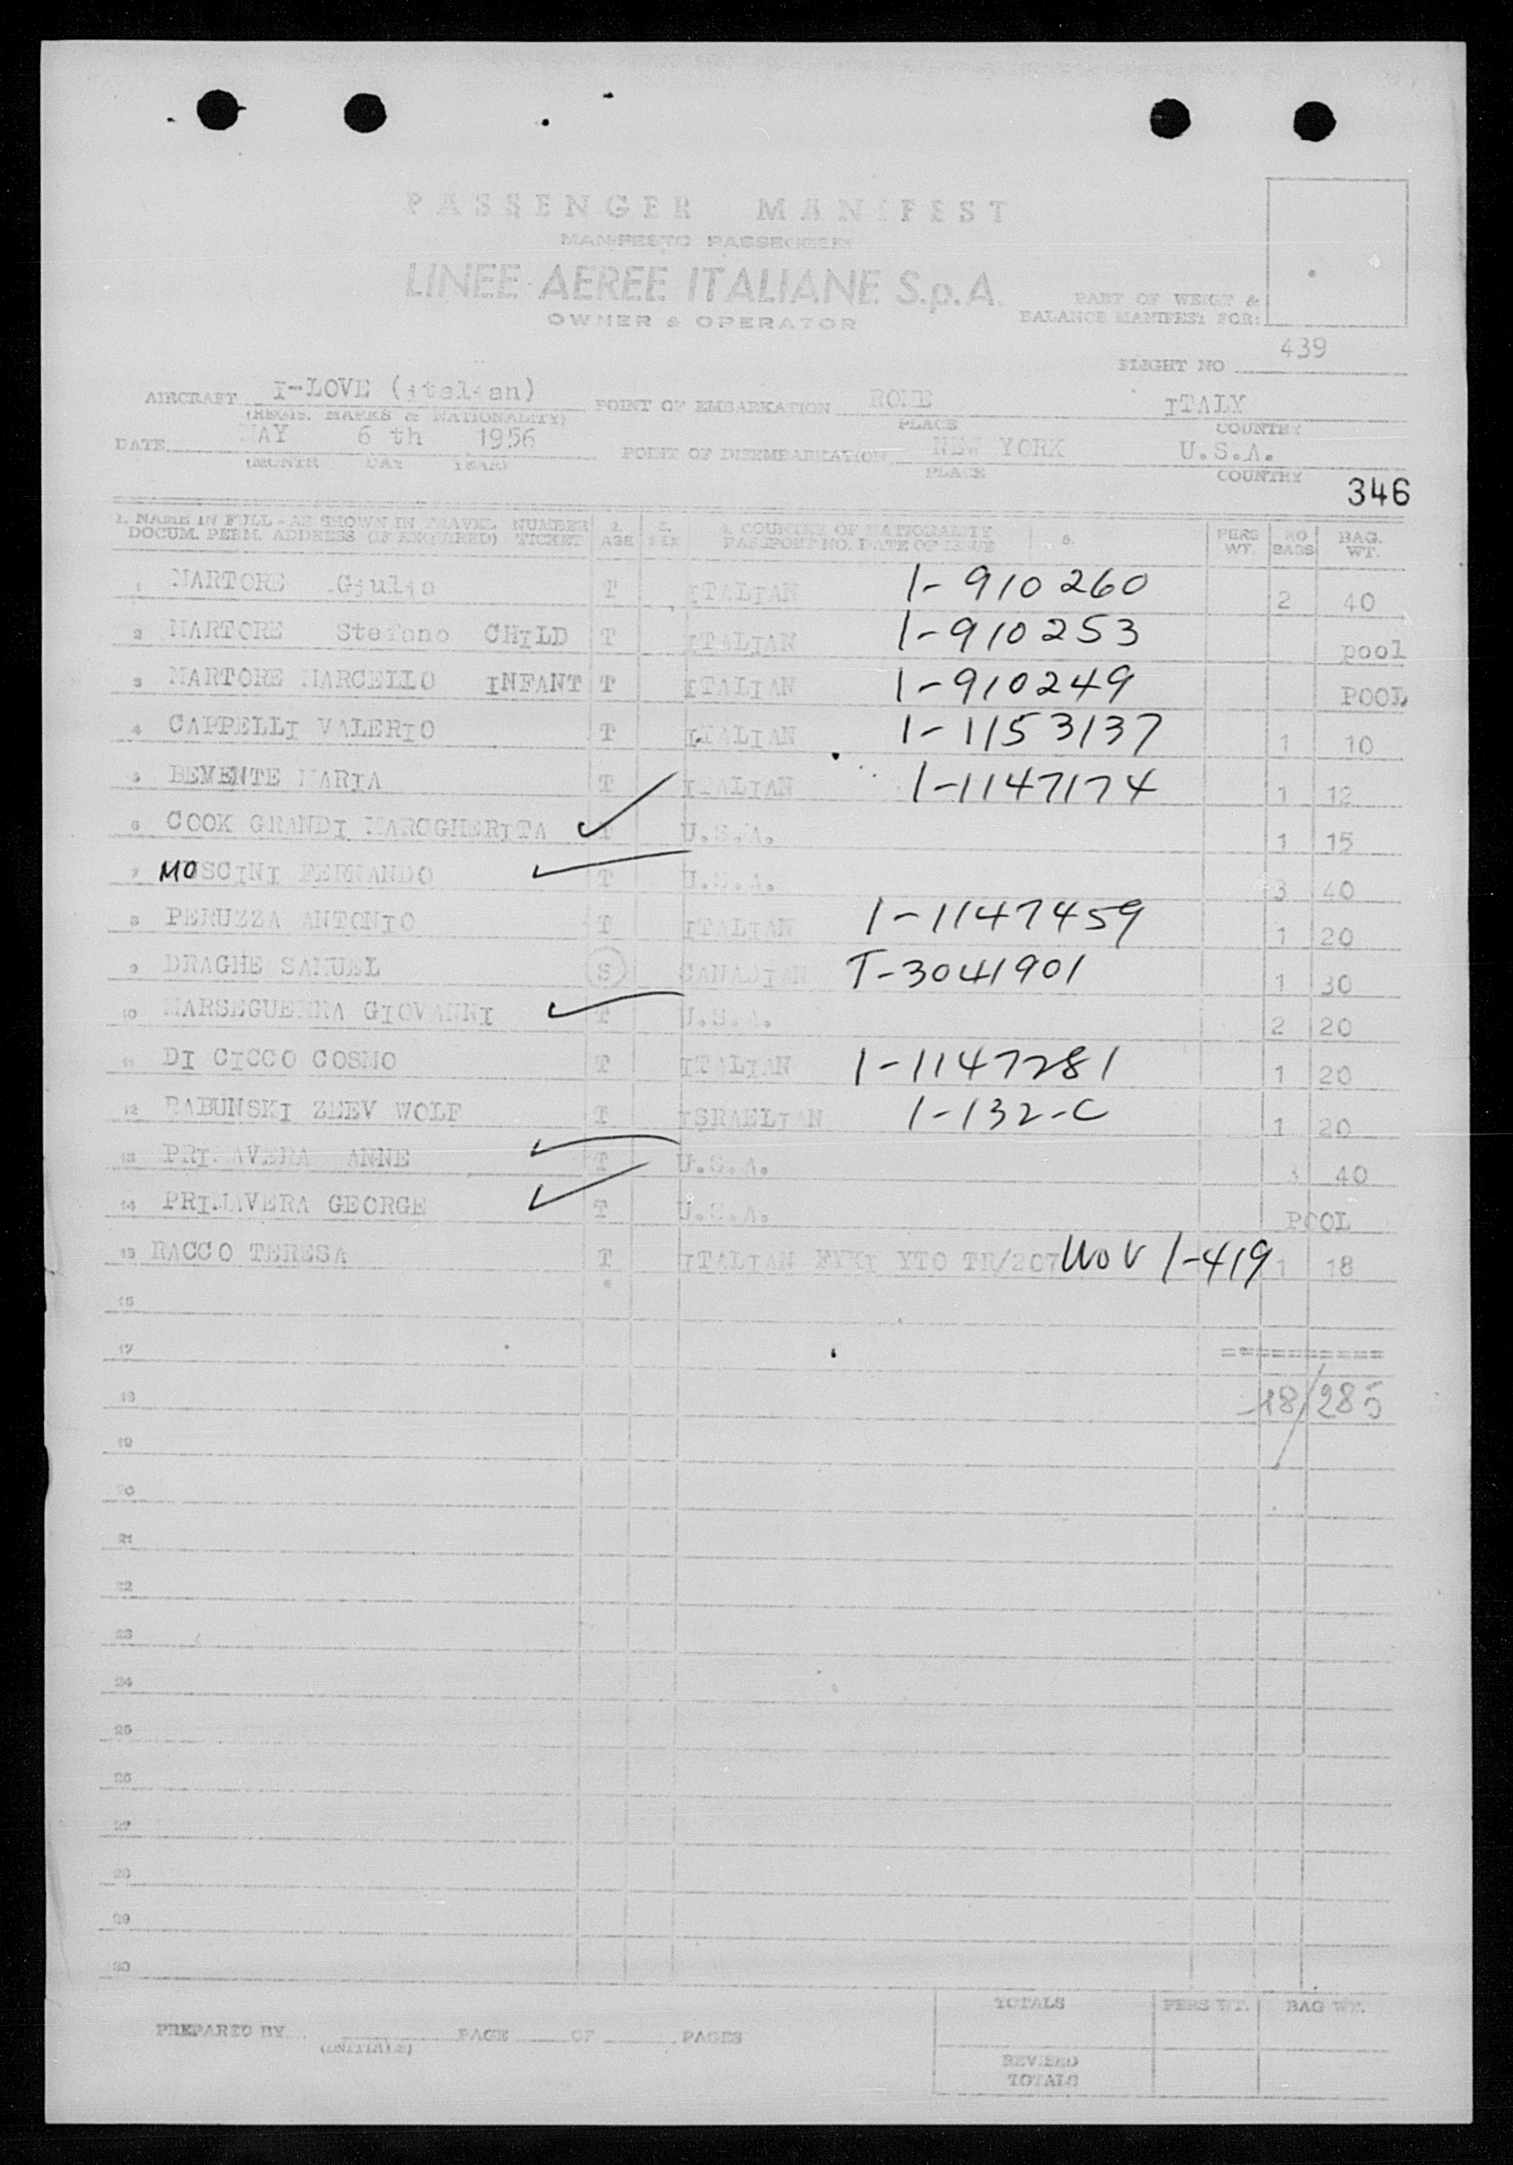 PASSENGER MANIFEST
MANIFESTO PASSEGGERI
LINEE AEREE ITALIANE S.p.A.
OWNER & OPERATOR
PART OF WEIGT &
BALANCE MANIFEST FOR:
FLIGHT NO 439
AIRCRAFT I-LOVE (italian) POINT OF EMBARKATION ROME ITALY
(REGIS. MARKS & NATIONALITY) PLACE COUNTRY
DATE MAY 6 th 1956 POINT OF DISEMBARKATION NEW YORK U.S.A.
(MONTH DAY YEAR) PLACE COUNTRY
346
1. NAME IN FULL - AS SHOWN IN TRAVEL NUMBER 2. 3. 4. COUNTRY OF NATIONALITY PERS NO BAG.
DOCUM. PERM. ADDRESS (IF REQUIRED) TICKET AGE SEX PASSPORT NO. DATE OF ISSUE WT. BAGS WT.
1 MARTORE Giulio T ITALIAN 1-910260 2 40
2 MARTORE Stefano CHILD T ITALIAN 1-910253 pool
3 MARTORE MARCELLO INFANT T ITALIAN 1-910249 POOL
4 CAPPELLI VALERIO T ITALIAN 1-1153137 1 10
5 BEMENTE MARIA T ITALIAN 1-1147174 1 12
6 COOK GRANDI MARGGHERITA ✓ T U.S.A. 1 15
7 MOSCINI FERNANDO ✓ T U.S.A. 3 40
8 PERUZZA ANTONIO T ITALIAN 1-1147459 1 20
9 DRAGHE SAMUEL S CANADIAN T-3041901 1 30
10 MARSEGUERRA GIOVANNI ✓ T U.S.A. 2 20
11 DI CICCO COSMO T ITALIAN 1-1147281 1 20
12 RABUNSKI ZEEV WOLF T ISRAELIAN 1-132-C 1 20
13 PRIMAVERA ANNE ✓ T U.S.A. 3 40
14 PRIMAVERA GEORGE ✓ T U.S.A. POOL
15 RACCO TERESA T ITALIAN YTO TR/207 1-419 1 18
16
17 ==========
18 18/285
19
20
21
22
23
24
25
26
27
28
29
30
TOTALS PERS WT. BAG WT.
PREPARED BY PAGE OF PAGES
(INITIALS)
REVISED
TOTALS